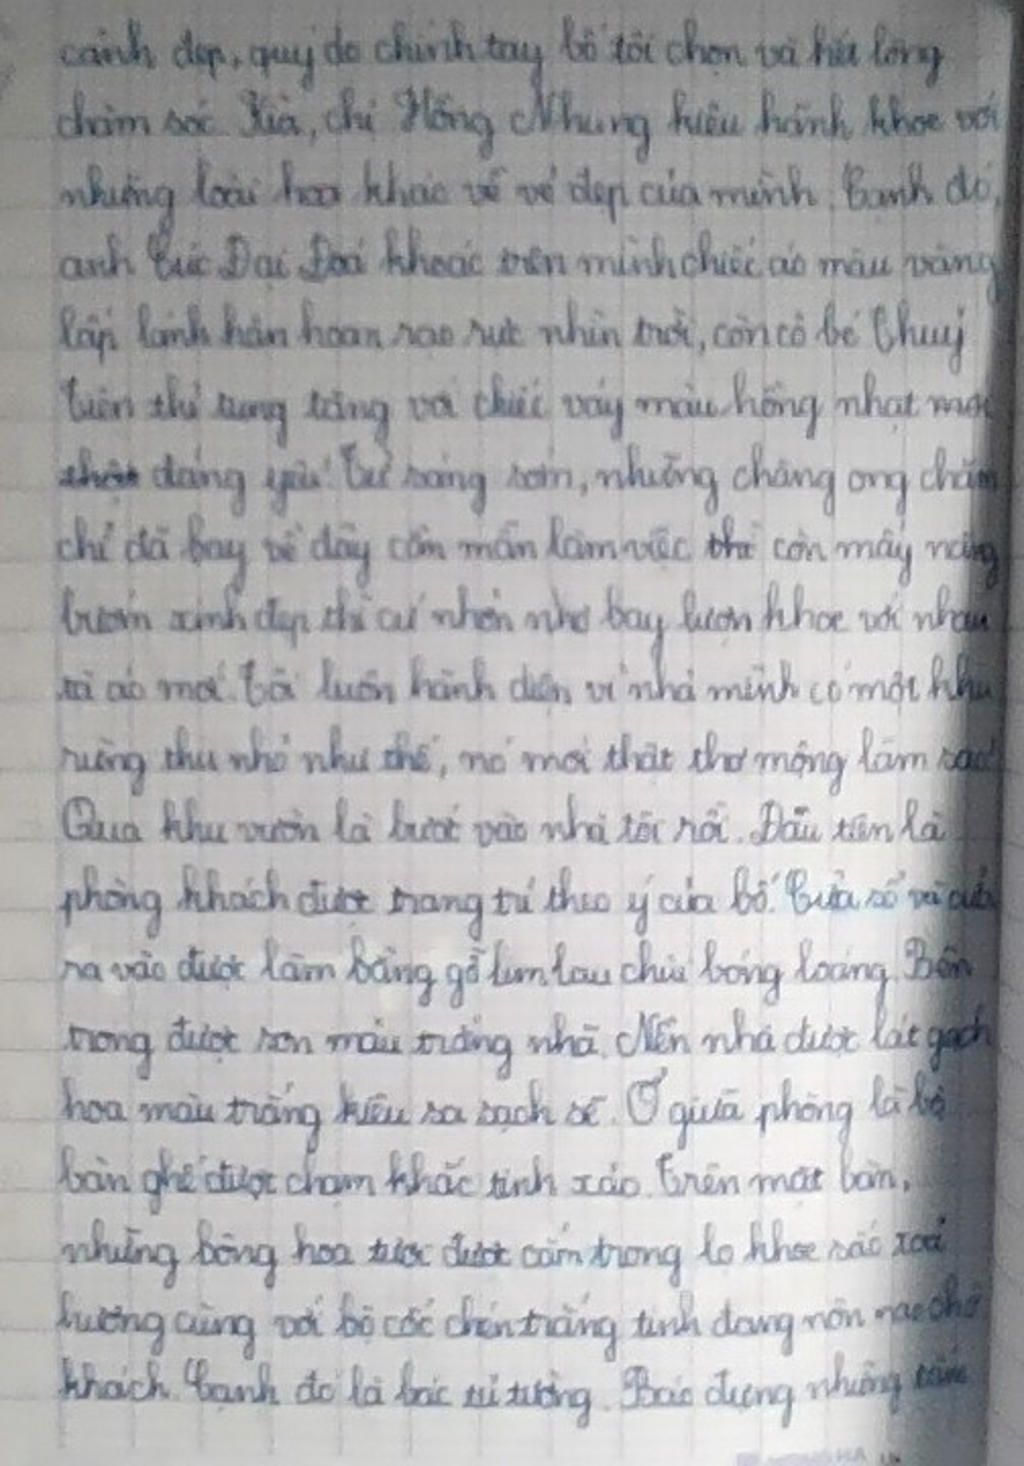 cảnh đẹp, quý do chính tay bố tôi chọn và hết lòng
chăm sóc. Kìa, chị Hồng Nhung kiêu hãnh khoe với
những loài hoa khác về vẻ đẹp của mình. Cạnh đó,
anh Cúc Đại Đoá khoác trên mình chiếc áo màu vàng
lấp lánh hân hoan rạo rực nhìn trời, còn cô bé Thuỷ
Tiên thì tung tăng với chiếc váy màu hồng nhạt mới
đáng yêu. Từ sáng sớm, những chàng ong chăm
chỉ đã bay về đây cần mẫn làm việc còn mấy nàng
bướm xinh đẹp thì cứ nhởn nhơ bay lượn khoe với nhau
tà áo mới. Tôi luôn hãnh diện vì nhà mình có một khu
rừng thu nhỏ như thế, nó mới thật thơ mộng làm sao!
Qua khu vườn là bước vào nhà tôi rồi. Đầu tiên là
phòng khách được trang trí theo ý của bố. Cửa sổ và cửa
ra vào được làm bằng gỗ lim lau chùi bóng loáng. Bên
trong được sơn màu trắng nhã. Nền nhà được lát gạch
hoa màu trắng kiêu sa sạch sẽ. Ở giữa phòng là bộ
bàn ghế được chạm khắc tinh xảo. Trên mặt bàn,
những bông hoa tươi được cắm trong lọ khoe sắc toả
hương cùng với bộ cốc chén trắng tinh đang nôn nao chờ
khách. Cạnh đó là bác tủ tường. Bác đựng những